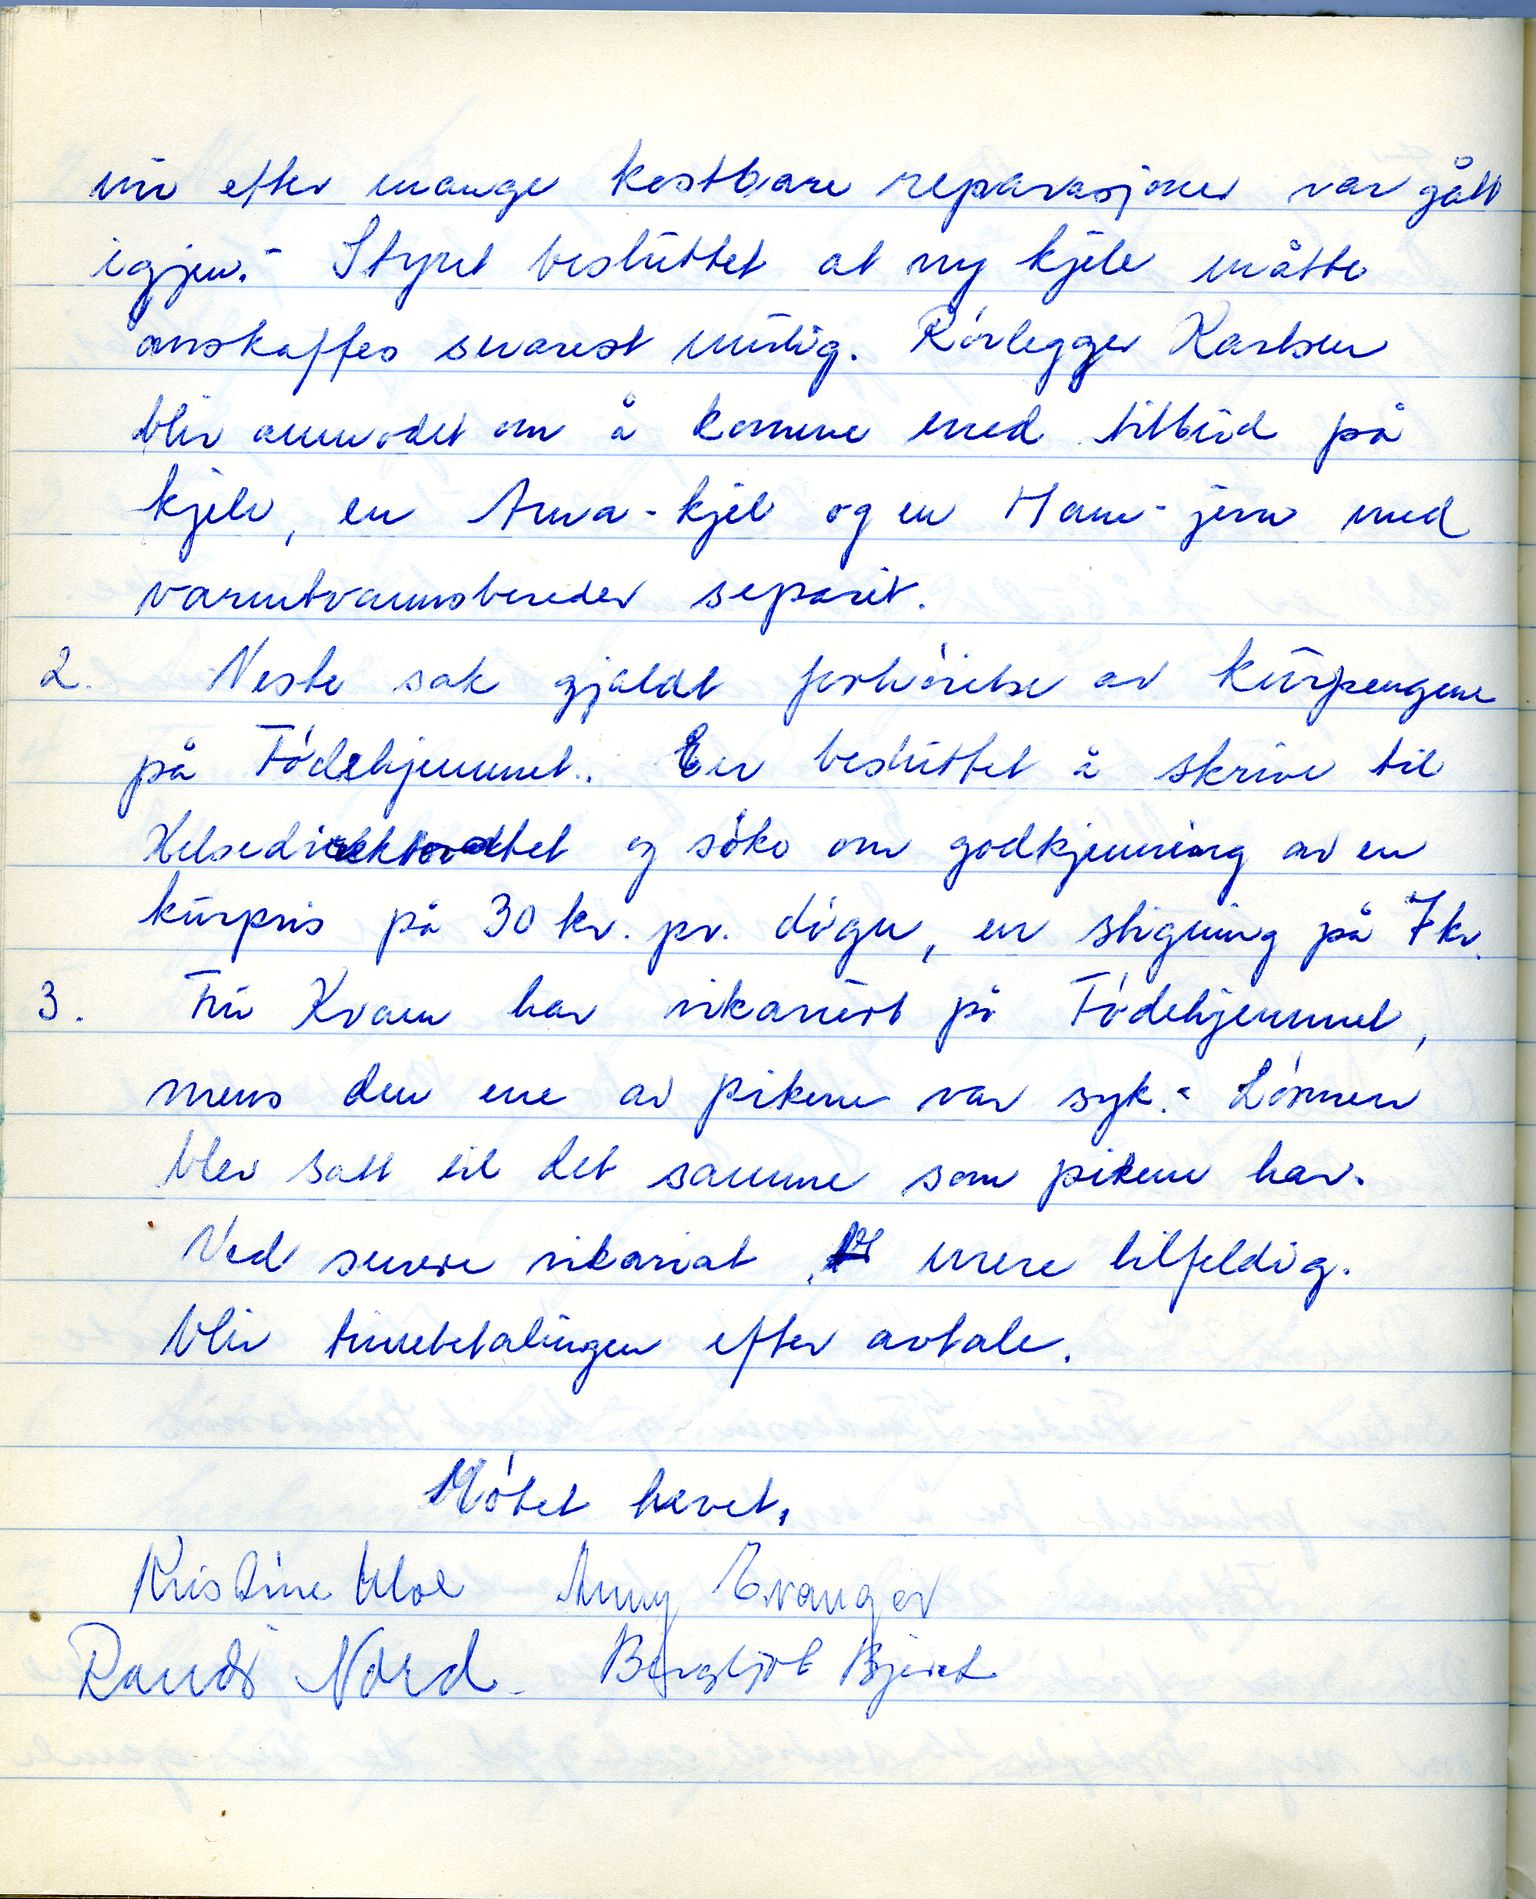 nu efter mange kostbare reparasjoner var gått
igjen.- Styret besluttet at ny kjele måtte
anskaffes snarest mulig. Rörlegger Karlsen
blir anmodet om å komme med tilbud på
kjele, en Arna-kjel og en Ham-jern med
varmtvannsbereder separat.
2. Neste sak gjaldt forhöielse av kurpengene
på Födehjemmet. Er besluttet å skrive til
Helsedirektoratet og söke om godkjenning av en
kurpris på 30 kr. pr. dögn, en stigning på 7 kr.
3. Fru Kvam har vikariert på Födehjemmet,
mens den ene av pikene var syk.- Lönnen
blev satt til det samme som pikene har.
Ved senere vikariat, mere tilfeldig.
blir timebetalingen efter avtale.
Mötet hevet.
Kristine Moe Anny Evanger
Randi Nord. Bergljot Bjerct